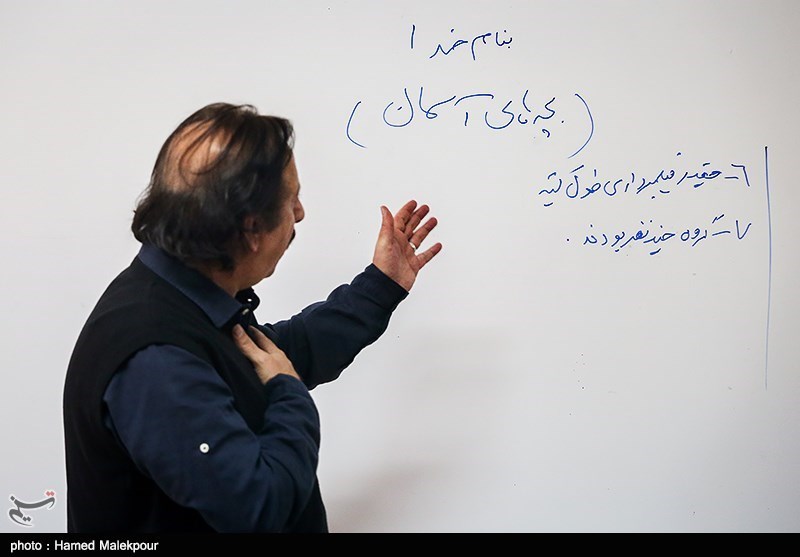 بنام خدا
(بچه‌های آسمان)
۶ـ چقدر فیلمبرداری طول کشید
۷ـ گروه چند نفر بودند.
تسنیم
photo : Hamed Malekpour